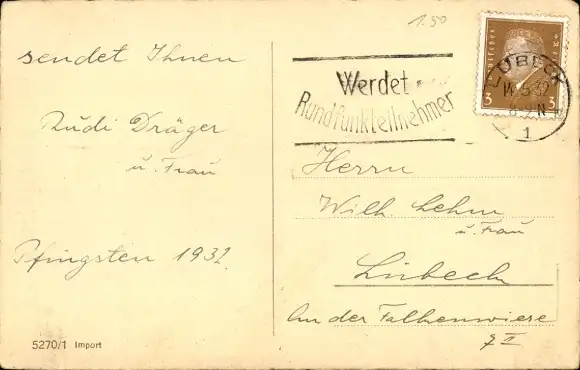 sendet Ihnen
Rudi Dräger
u. Frau
Pfingsten 1932.
5270/1 Import
1.50
Werdet
Rundfunkteilnehmer
Deutsches Reich
3 3
LÜBECK
14.5.32
8-9 N
1
Herrn
Wilh. Lehm
u. Frau
Lübeck
An der Falkenwiese
7 II